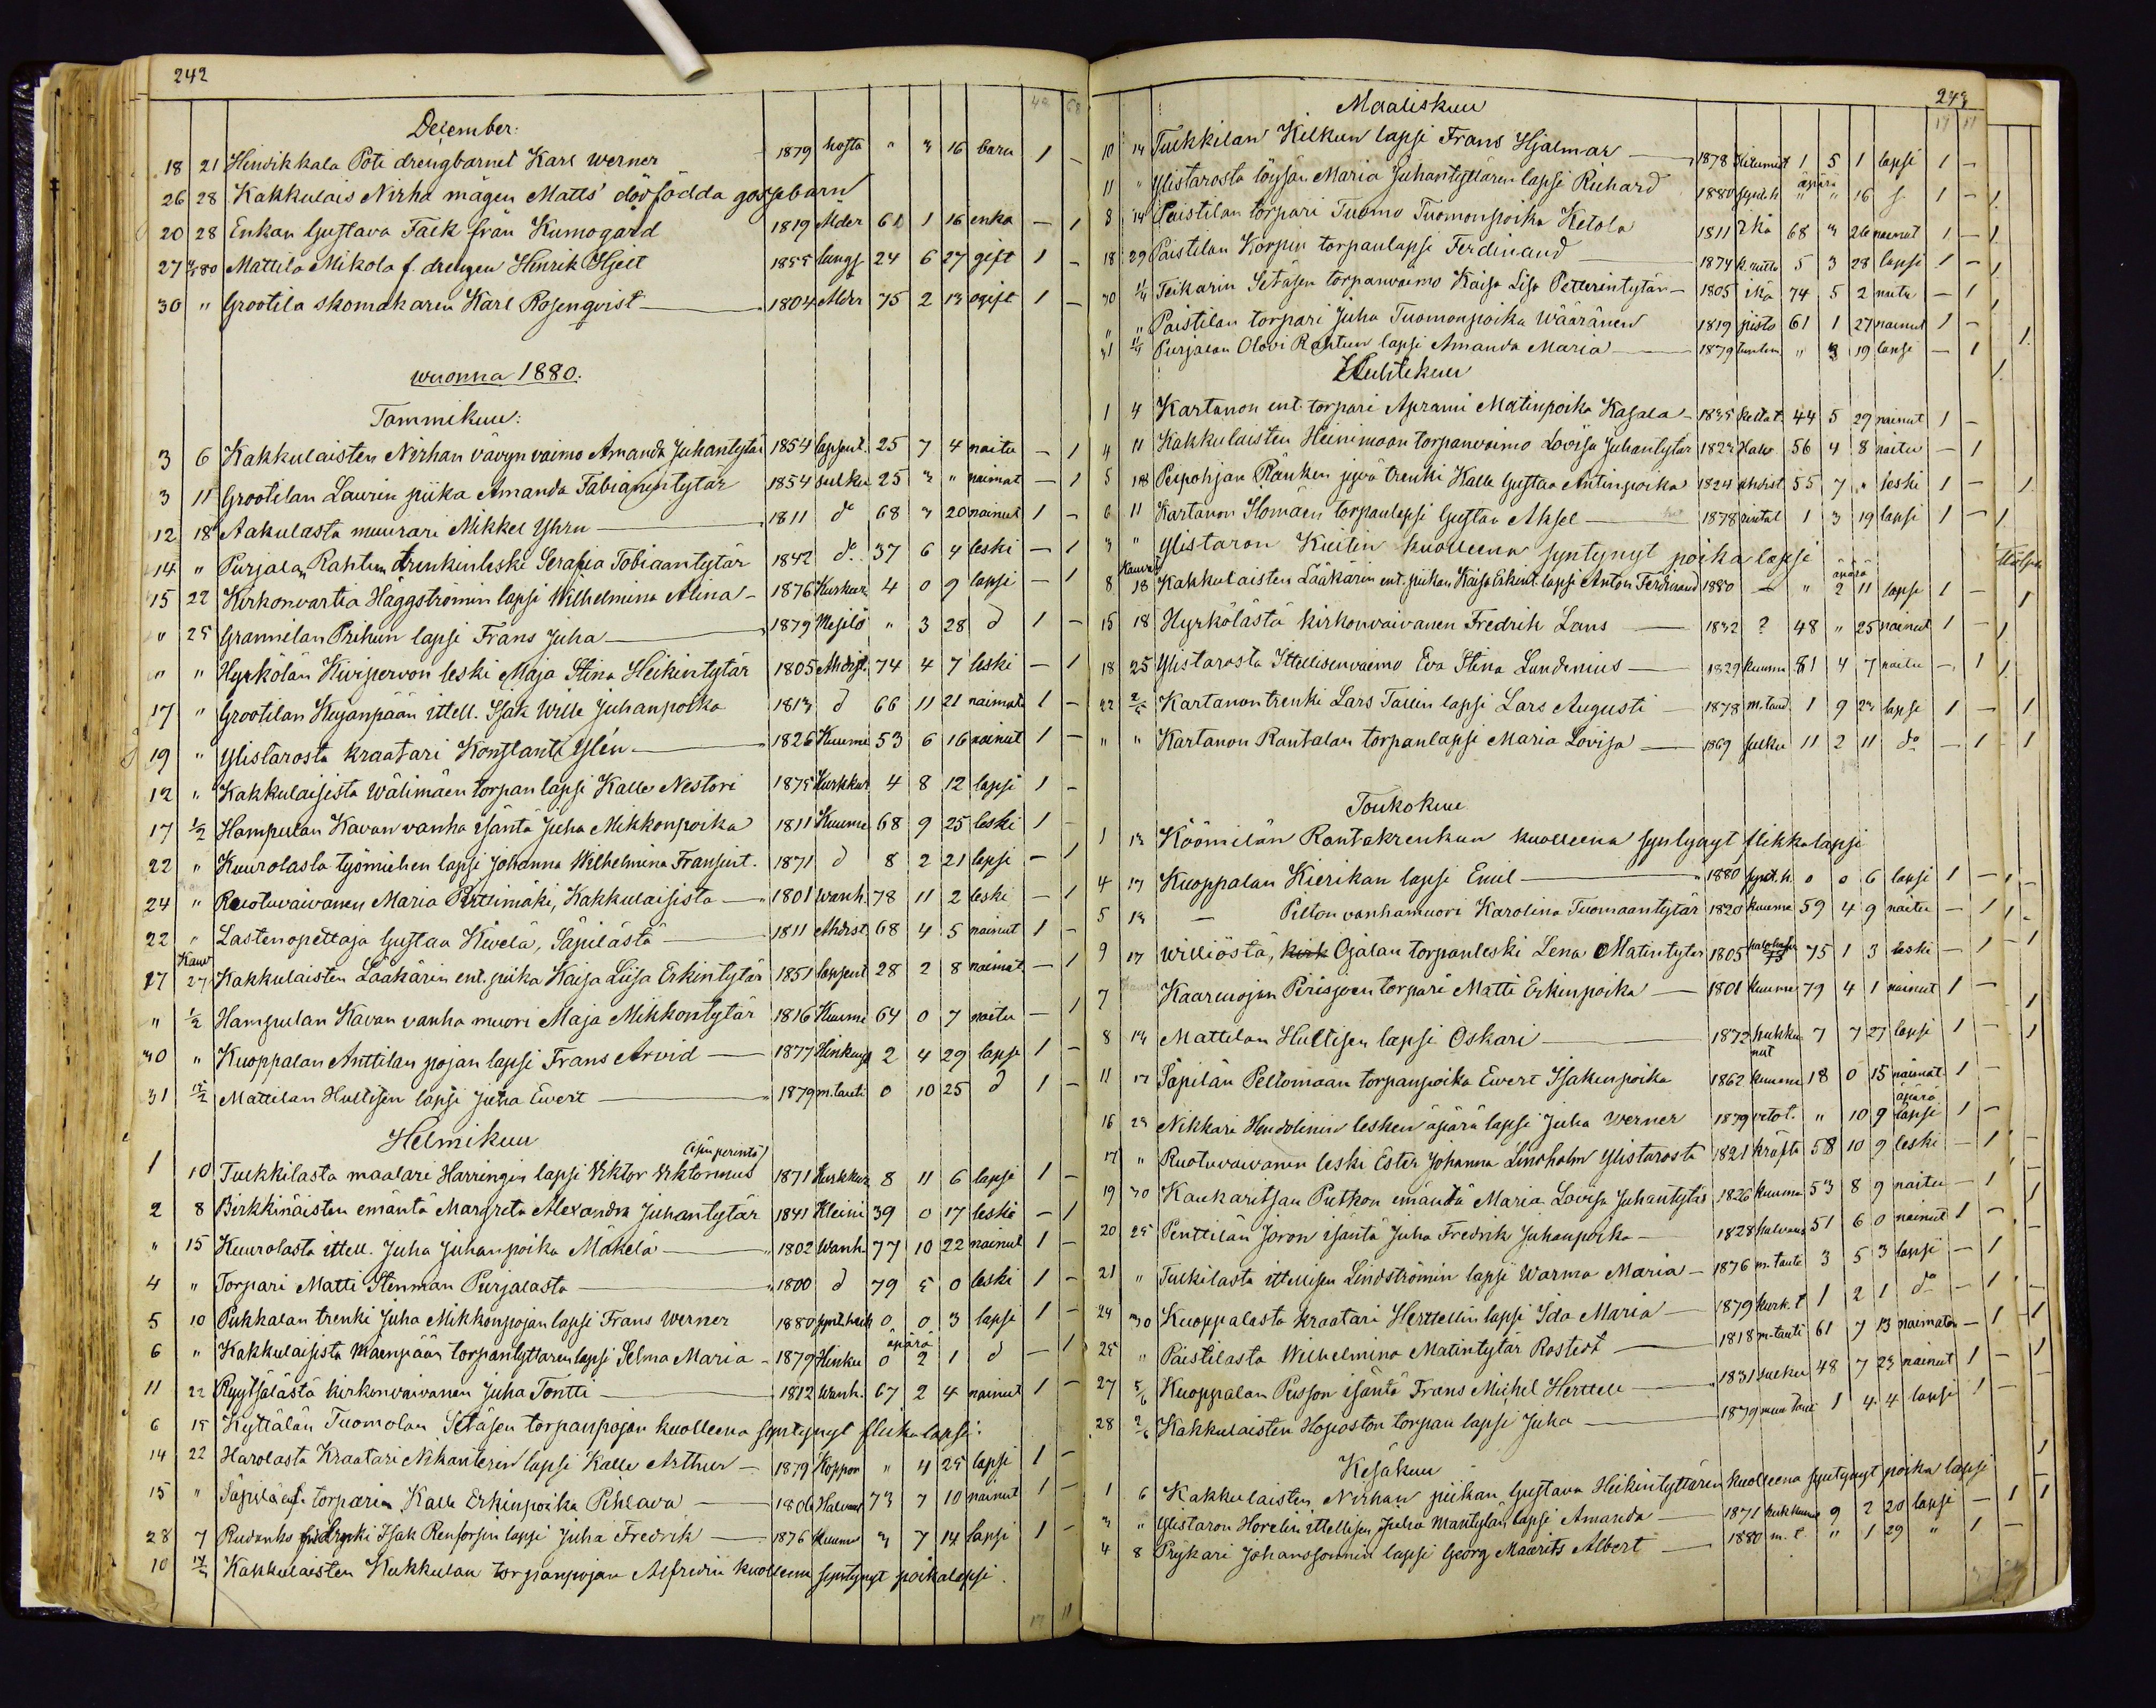 242
December:
18 21 Hinvikkala Poti drengbarnet Karl Werner 1879 hosta " 3 16 barn 1 -
26 28 Kakkulais Nirha mågen Matts' dödfödda gossebarn
20 28 Enkan Gustava Falk från Kumogård 1819 Ålder 61 1 16 enka - 1
27 80 Mattila Mikola f. drengen Hinrik Hjeit 1855 lungs 24 6 27 gift 1 -
30 " Grootila skomakaren Karl Rosenqvist 1804 Ålder 75 2 13 ogift 1 -
wuonna 1880.
Tammikuu:
3 6 Kakkulaisten Nirhan vävyn vaimo Amanda Juhantytär 1854 lapsent. 25 7 4 naitu - 1
3 11 Grootilan Laurin piika Amanda Fabianintytär 1854 sulku 25 3 " naimat - 1
12 18 Aakulasta muurari Mikkel Yhrn 1811 do 68 3 20 nainut 1 -
14 " Purjalan Rahtun drenkinleski Serafia Tobiaantytär 1842 do 37 6 4 leski - 1
15 22 Kirkonvartia Häggströmin lapsi Wilhelmina Alina 1876 Kurkun 4 0 9 lapsi - 1
" 25 Grannilan Prihun lapsi Frans Juha 1879 " 3 28 d 1 -
" " Hyrkölän Kivipervon leski Maja Stina Heikintytär 1805 Ahdist. 74 4 7 leski - 1
17 " Grootilan Kujanpään ittell. Isak Wille Juhanpoika 1813 d 66 11 21 naimat 1 -
19 " Ylistarosta kraatari Konstanti Ylén 1826 Kuume 53 6 16 nainut 1 -
12 " Kakkulaisista Wälimäen torpan lapsi Kalle Nestori 1875 Kurkkut 4 8 12 lapsi 1 -
17 1/2 Hampulan Kavan vanha isäntä Juha Mikkonpoika 1811 Kuume 68 9 25 leski 1 -
22 " Kuurolasta työmiehen lapsi Johanna Wilhelmina Fransint. 1871 d 8 2 21 lapsi - 1
24 " Ruotuvaivanen Maria Perttimäki, Kakkulaisista 1801 wanh. 78 11 2 leski - 1
22 " Lastenopettaja Gustaa Kivelä, Säpilästä 1811 Ahdist 68 4 5 nainut 1 -
Kauv
27 27 Kakkulaisten Lääkärin ent. piika Kaisa Liisa Erkintytär 1851 lapsent 28 2 8 naimat - 1
" 1/2 Hampulan Kavan vanha muori Maja Mikkontytär 1816 Kuume 64 0 7 naitu - 1
30 " Kuoppalan Anttilan pojan lapsi Frans Arvid 1877 Hinkuys 2 4 29 lapsi 1 -
31 15/2 Mattilan Hultisen lapsi Juha Ewert 1879 m.tauti 0 10 25 d 1 -
Helmikuu
1 10 Tulkkilasta maalari Harringin lapsi Viktor Viktorinus 1871 Kurkkut 8 11 6 lapsi 1 -
2 8 Birkkinäisten emäntä Margreta Alexandra Juhantytär 1841 Kleini 39 0 17 leski - 1
" 15 Kuurolasta ittell. Juha Juhanpoika Mäkelä 1802 Wanh. 77 10 22 nainut 1 -
4 " Torpari Matti Stenman Purjalasta 1800 d 79 5 0 leski 1 -
5 10 Pukkalan trenki Juha Mikkonpojan lapsi Frans Werner 1880 synt.heik 0 0 3 lapsi 1 -
äpärä
6 " Kakkulaisista Mäenpään torpantyttären lapsi Selma Maria 1879 Hinku 0 2 1 d - 1
11 22 Ryytsälästä kirkonvaivanen Juha Tontti 1812 Wanh. 67 2 4 nainut 1 -
6 15 Kyttälän Tuomolan Setäsen torpanpojan kuolleena syntynyt flikkalapsi.
14 22 Harolasta Kraatari Nikanterin lapsi Kalle Arthur 1879 Koppor " 4 25 lapsi 1 -
15 " Säpilä ent. torparin Kalle Erkinpoika Pihlava 1806 Halvaus 73 7 10 nainut 1 -
28 7 Isak Renforsin lapsi Juha Fredrik 1876 Kuume 3 7 14 lapsi 1 -
10 Kakkulaisten Kukkulan torpanpojan Alfredin kuolleena syntynyt poikalapsi.
17 11
243
Maaliskuu
17 11
10 14 Tulkkilan Kilkun lapsi Frans Hjalmar 1878 1 5 1 lapsi 1 -
11 " Ylistarosta löysän Maria Juhantyttären lapsi Richard 1880 synt.h äpärä " " 16 1 -
8 14 Paistilan torpari Tuomo Tuomonpoika Ketola 1811 ikä 68 3 26 nainut 1 -
18 29 Paistilan Korpin torpanlapsi Ferdinand 1874 5 3 28 lapsi 1 -
30 1/4 Teikarin Setäsen torpanvaimo Kaisa Lisa Petterintytär 1805 ikä 74 5 2 naitu - 1
" " Paistilan torpari Juha Tuomonpoika Wääränen 1819 pisto 61 1 27 nainut 1 -
31 11/4 Purjalan Olovi Rahtun lapsi Amanda Maria 1879 " 3 19 lapsi - 1
Huhtikuu
1 4 Kartanon ent. torpari Aprami Matinpoika Kasala 1835 keltat. 44 5 29 nainut 1 -
4 11 Kakkulaisten Heinimaan torpanvaimo Lovisa Juhantytär 1823 Halv. 56 4 8 naitu - 1
5 18 Peipohjan Ränkun jyvä trenki Kalle Gustaa Antinpoika 1824 ahdist 55 7 " leski 1 -
6 11 Kartanon Homäen torpanlapsi Gustav Aksel 1878 rintat 1 3 19 lapsi 1 -
3 " Ylistaron Kuitin kuolleena syntynyt poika lapsi
Kauv
8 18 Kakkulaisten Lääkärin ent. piikan Kaisa Erkint. lapsi Anton Ferdinand 1880 - " äpärä 2 11 lapsi 1 -
15 18 Hyrkölästä kirkonvaivanen Fredrik Lans 1832 ? 48 " 25 nainut 1 -
18 25 Ylistarosta Ittellisenvaimo Eva Stina Lundenius 1829 kuume 51 4 7 naitu - 1
22 2/5 Kartanon trenki Lars Tallin lapsi Lars Augusti 1878 m.taud 1 9 23 lapsi 1 -
" " Kartanon Rantalan torpanlapsi Maria Lovisa 1869 sulku 11 2 11 do - 1
Toukokuu
1 13 Köömilän Rantakrenkun kuolleena syntynyt flikkalapsi
4 17 Kuoppalan Kierikan lapsi Emil 1880 synt.h. 0 0 6 lapsi 1 -
5 13 - Pilton vanhamuori Karolina Tuomaantytär 1820 kuume 59 4 9 naitu - 1
9 17 Williöstä, kirk Ojalan torpanleski Lena Matintytär 1805 75 1 3 leski - 1
7 Kaarenojan Pirisjoen torpari Matti Erkinpoika 1801 kuume 79 4 1 nainut 1 -
8 14 Mattilan Hultisen lapsi Oskari 1872 hukku nut 7 7 27 lapsi 1 -
11 17 Säpilän Peltomaan torpanpoika Ewert Isakinpoika 1862 kuume 18 0 15 naimat 1 -
16 23 Nikkari Hendolinin lesken äpärä lapsi Juha Werner 1879 vetot. " 10 9 äpärä lapsi 1 -
17 " Ruotuvaivanen leski Ester Johanna Lindholm Ylistarosta 1821 kräfta 58 10 9 leski - 1
19 30 Kaukaritsan Putkon emäntä Maria Lovisa Juhantytär 1826 kuume 53 8 9 naitu - 1
20 25 Penttilän Joron isäntä Juha Fredrik Juhanpoika 1828 halvaus 51 6 0 nainut 1 -
21 " Tulkilasta ittellisen Lindströmin lapsi Warma Maria 1876 m.tauti 3 5 3 lapsi - 1
24 30 Kuoppalasta kraatari Herttellin lapsi Ida Maria 1879 kurk.t 1 2 1 do - 1
25 " Paistilasta Wilhelmina Matintytär Rostedt 1818 m-tauti 61 7 13 naimaton - 1
27 5/6 Kuoppalan Pusson isäntä Frans Michel Herttell 1831 sulku 48 7 23 nainut 1 -
28 2/6 Kakkulaisten Hoposton torpan lapsi Juha 1879 1 4 4 lapsi 1 -
Kesäkuu
1 6 Kakkulaisten Nirhan piikan Gustava Heikintyttären kuolleena syntynyt poika lapsi
3 " Ylistaron Horelin ittellisen Juha Mäntylän lapsi Amanda 1871 9 2 20 lapsi - 1
4 8 Prykari Johanssonnin lapsi Georg Mauritz Albert 1880 m.t. " 1 29 " 1 -